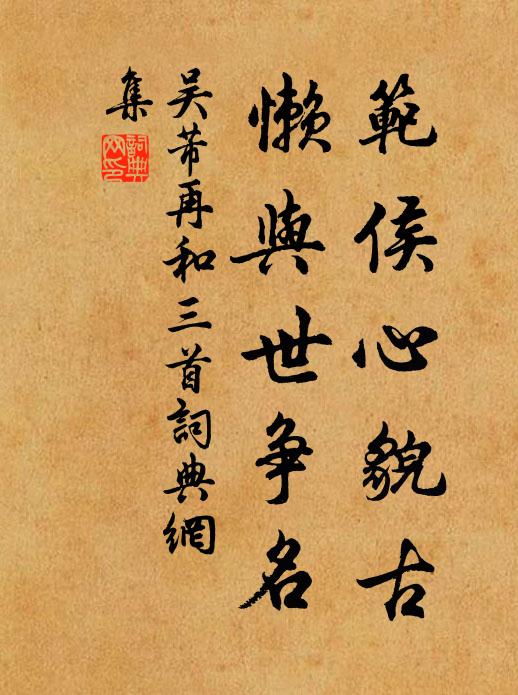 範侯心貌古
懶與世争名
吴芾再和三首詞典網
集
詞典
网印